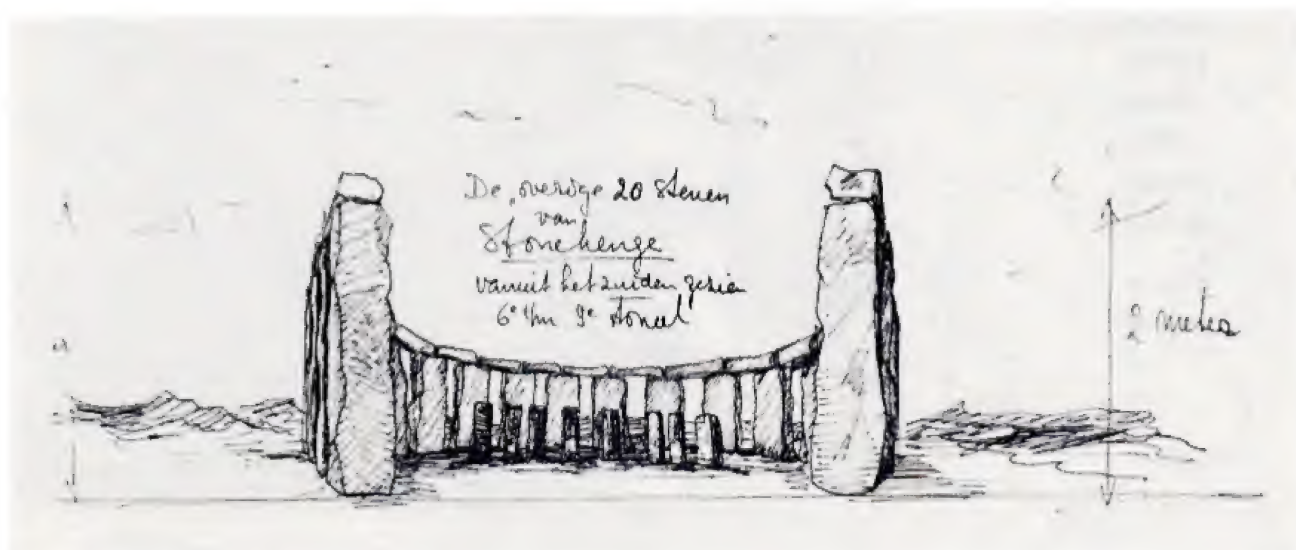 De overige 20 stenen
van
Stonehenge
vanuit het zuiden gezien
6e t/m 9e toneel
2 meter